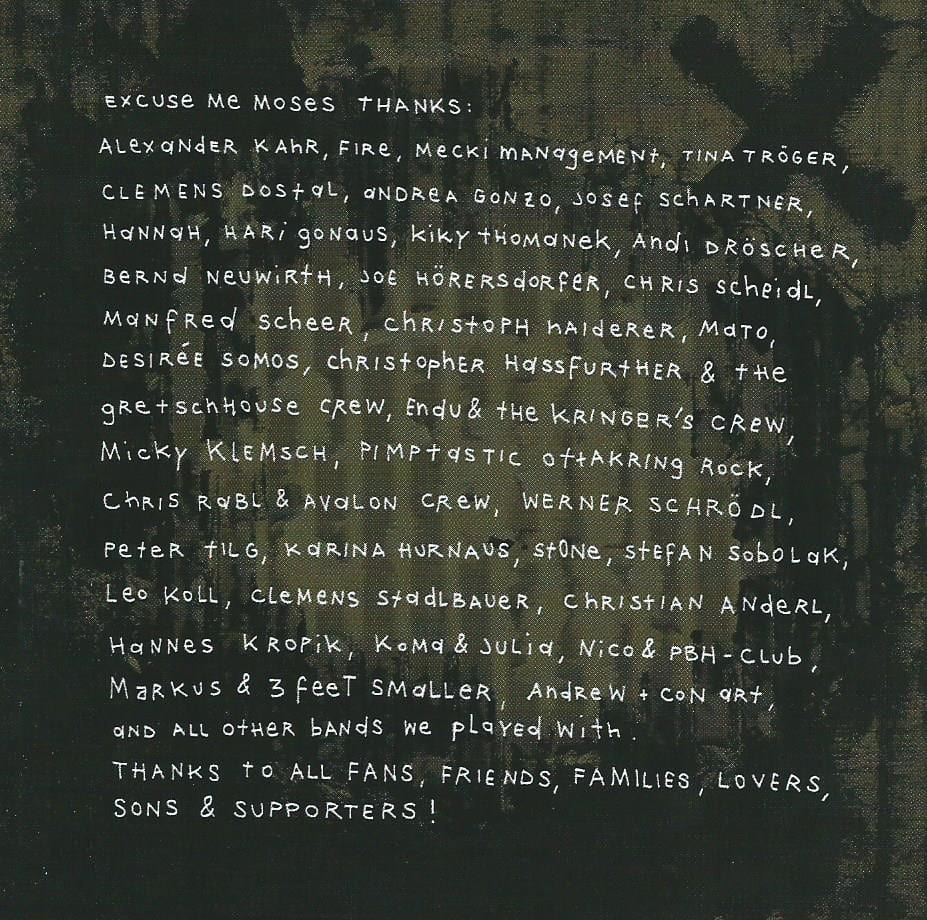 Excuse Me Moses THANKS:
Alexander Kahr, Fire, Mecki Management, Tina Tröger,
Clemens Dostal, Andrea Gonzo, Josef Schartner,
Hannah, Hari Gonaus, Kiky Thomanek, Andi Dröscher,
Bernd Neuwirth, Joe Hörersdorfer, Chris Scheidl,
Manfred Scheer, Christoph Haiderer, Mato,
Desirée Somos, Christopher Hassfurther & the
Gretschhouse Crew, Endu & the Kringer's Crew,
Micky Klemsch, Pimptastic Ottakring Rock,
Chris Rabl & Avalon Crew, Werner Schrödl,
Peter Tilg, Karina Hurnaus, St0ne, Stefan Sobolak,
Leo Koll, Clemens Stadlbauer, Christian Anderl,
Hannes Kropik, Koma & Julia, Nico & PBH-Club,
Markus & 3 Feet Smaller, Andrew + Con Art,
and all other bands we played with.
THANKS to ALL FANS, FRIENDS, FAMILIES, LOVERS,
SONS & SUPPORTERS!